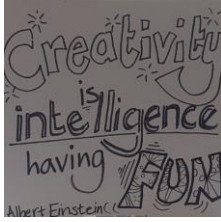 Creativity
is
intelligence
having FUN
Albert Einstein